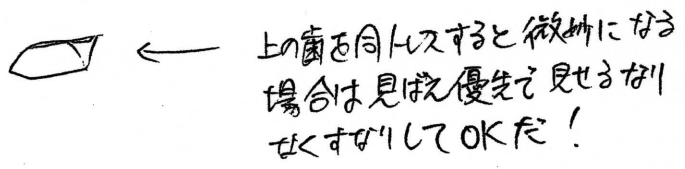 上の歯を同トレスすると微妙になる
場合は見ばえ優先で見せるなり
なくすなりしてOKだ!